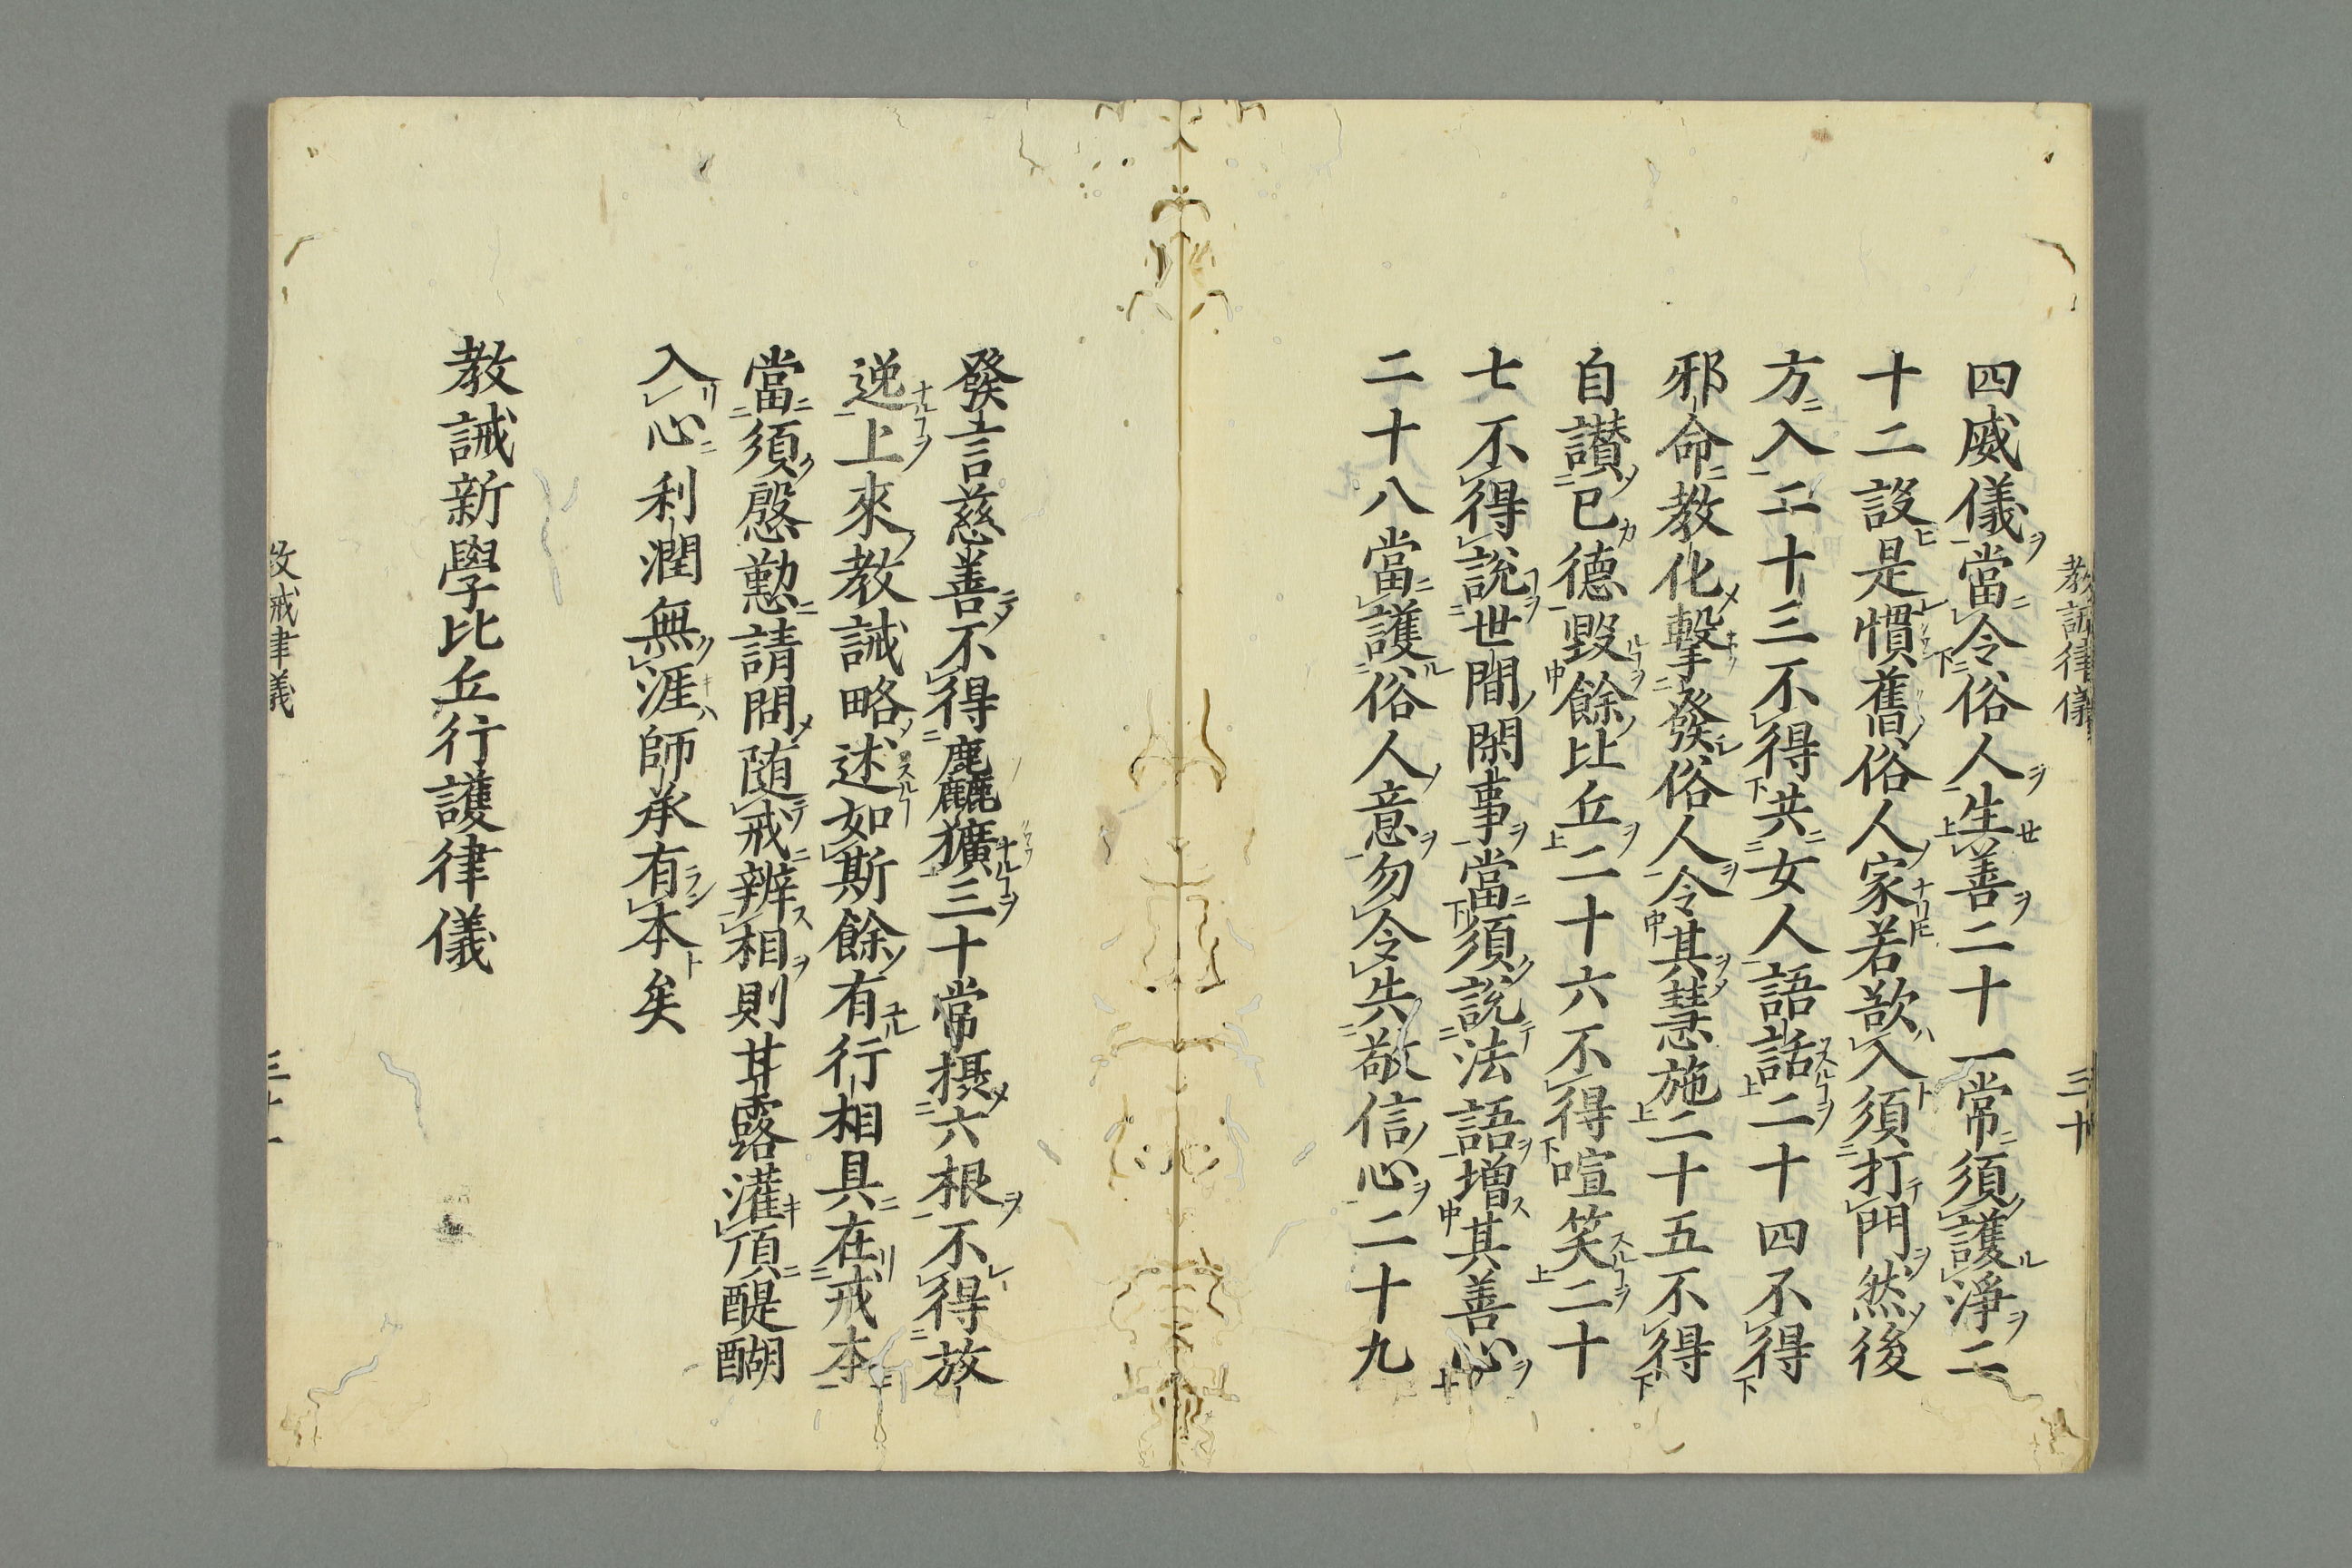 教誡律儀　三十
四威儀當令俗人生善二十一常須護淨二
十二設是慣舊俗人家若欲入須打門然後
方入二十三不得共女人語話二十四不得
邪命教化擊發俗人令其慧施二十五不得
自讃已德毀餘比丘二十六不得喧笑二十
七不得說世間閑事當須說法語增其善心
二十八當護俗人意勿令失敬信心二十九
發言慈善不得麤獷三十常摂六根不得放
逸上來教誡略述如斯餘有行相具在戒本
當須慇懃請問随戒辨相則甘露灌頂醍醐
入心利潤無涯師承有本矣
教誡新學比丘行護律儀
教誡律儀　三十一